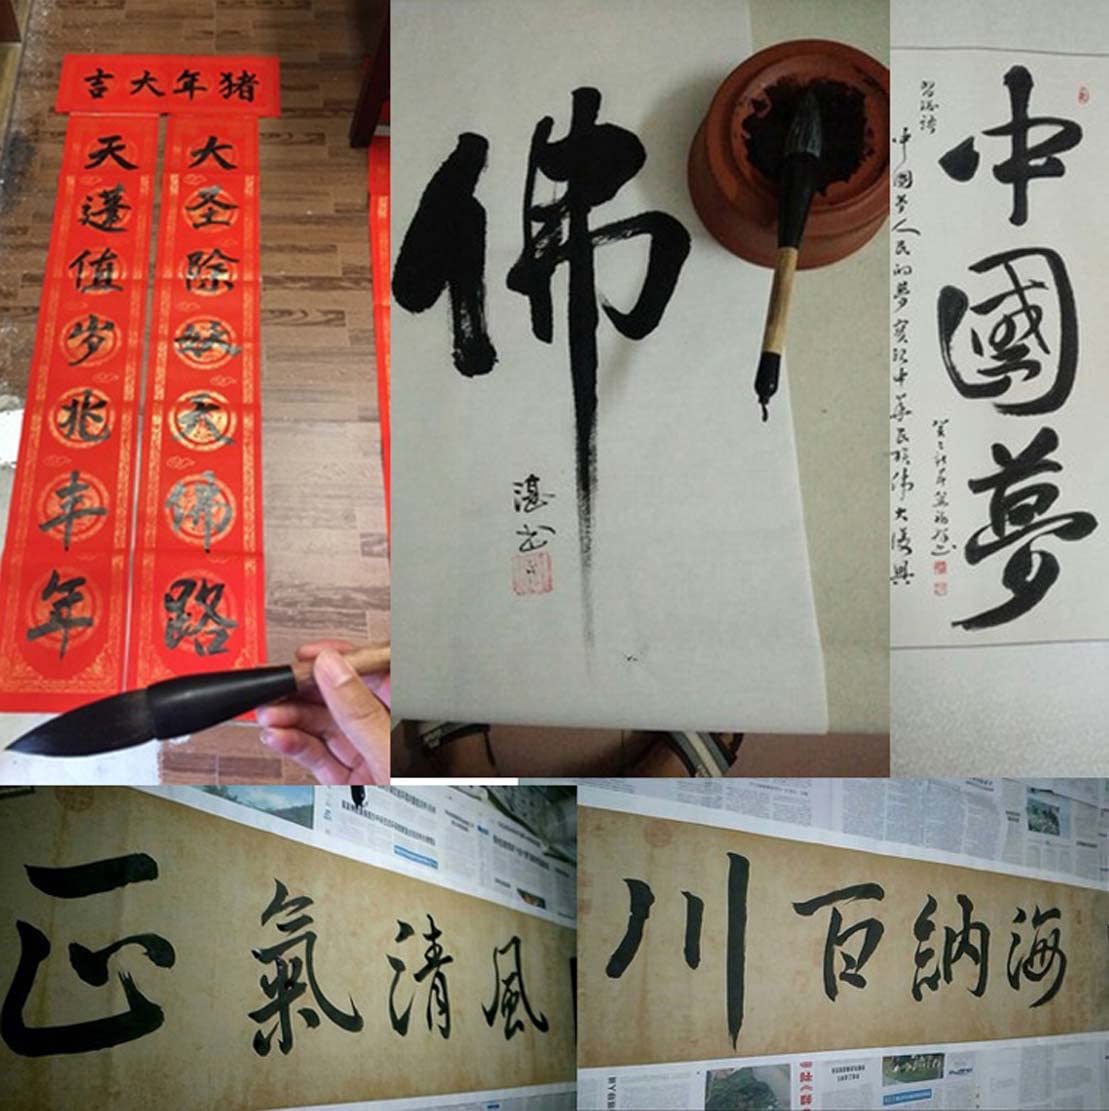 猪年大吉
大圣除妖天佛路
天蓬值岁兆丰年
佛
湛书
中國夢
中國梦人民的梦实现中华民族伟大復興
風清氣正
海納百川